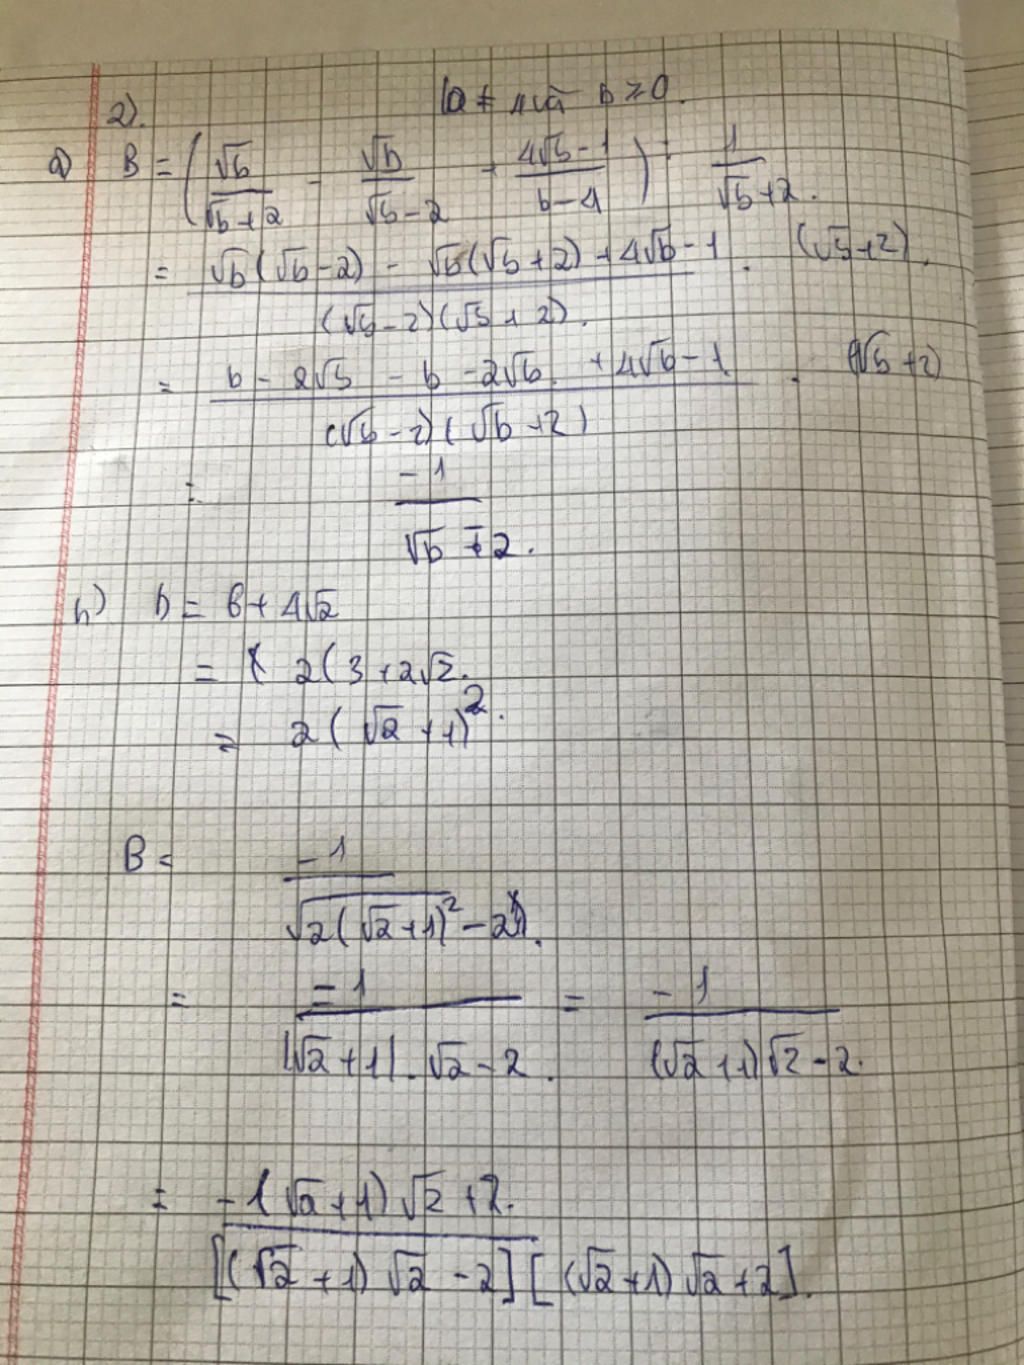 2). b ≠ 4 và b ≥ 0.
a) B = ( √b/(√b+2) - √b/(√b-2) + (4√b-1)/(b-4) ) : 1/(√b+2).
= (√b(√b-2) - √b(√b+2) + 4√b-1)/((√b-2)(√b+2)) . (√b+2).
= (b - 2√b - b - 2√b + 4√b - 1)/((√b-2)(√b+2)) . (√b+2)
= -1/(√b - 2).
b) b = 6+4√2
= 2(3+2√2.
= 2(√2+1)².
B = -1/(√(2(√2+1)²) - 2).
= -1/(|√2+1|.√2-2). = -1/((√2+1)√2-2.
= -1(√2+1)√2+2./[(√2+1)√2-2][(√2+1)√2+2].